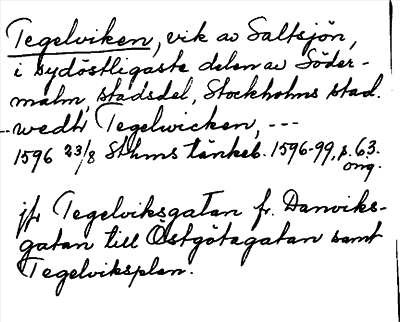 Tegelviken, vik av Saltsjön,
i sydöstligaste delen av Söder-
malm, stadsdel, Stockholms stad.
--wedh Tegelwicken, ---
1596 23/8 Sthms tänkeb. 1596-99, s. 63.
orig.
jfr Tegelviksgatan fr. Danviks-
gatan till Östgötagatan samt
Tegelviksplan.